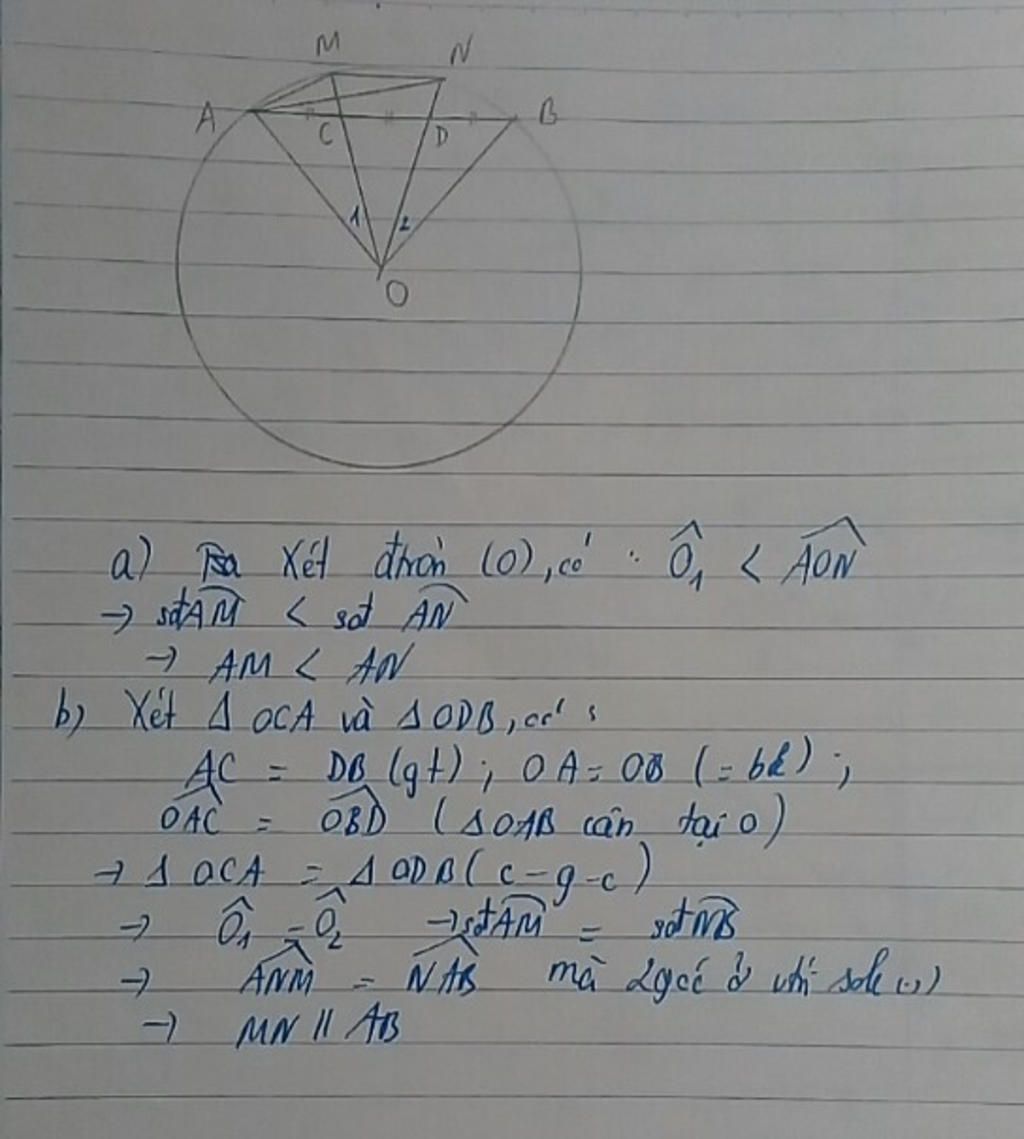 M N
A C D B
1 2
O
a) Xét đtròn (O), có : Ô₁ < \widehat{AON}
→ sđ\overparen{AM} < sđ \overparen{AN}
→ AM < AN
b) Xét Δ OCA và Δ ODB, có :
AC = DB (gt) ; OA = OB (= bk) ;
\widehat{OAC} = \widehat{OBD} (Δ OAB cân tại O)
→ Δ OCA = Δ ODB ( c - g - c )
→ Ô₁ = Ô₂ → sđ\overparen{AM} = sđ\overparen{NB}
→ \widehat{ANM} = \widehat{NAB} mà 2góc ở vtrí sole
→ MN // AB